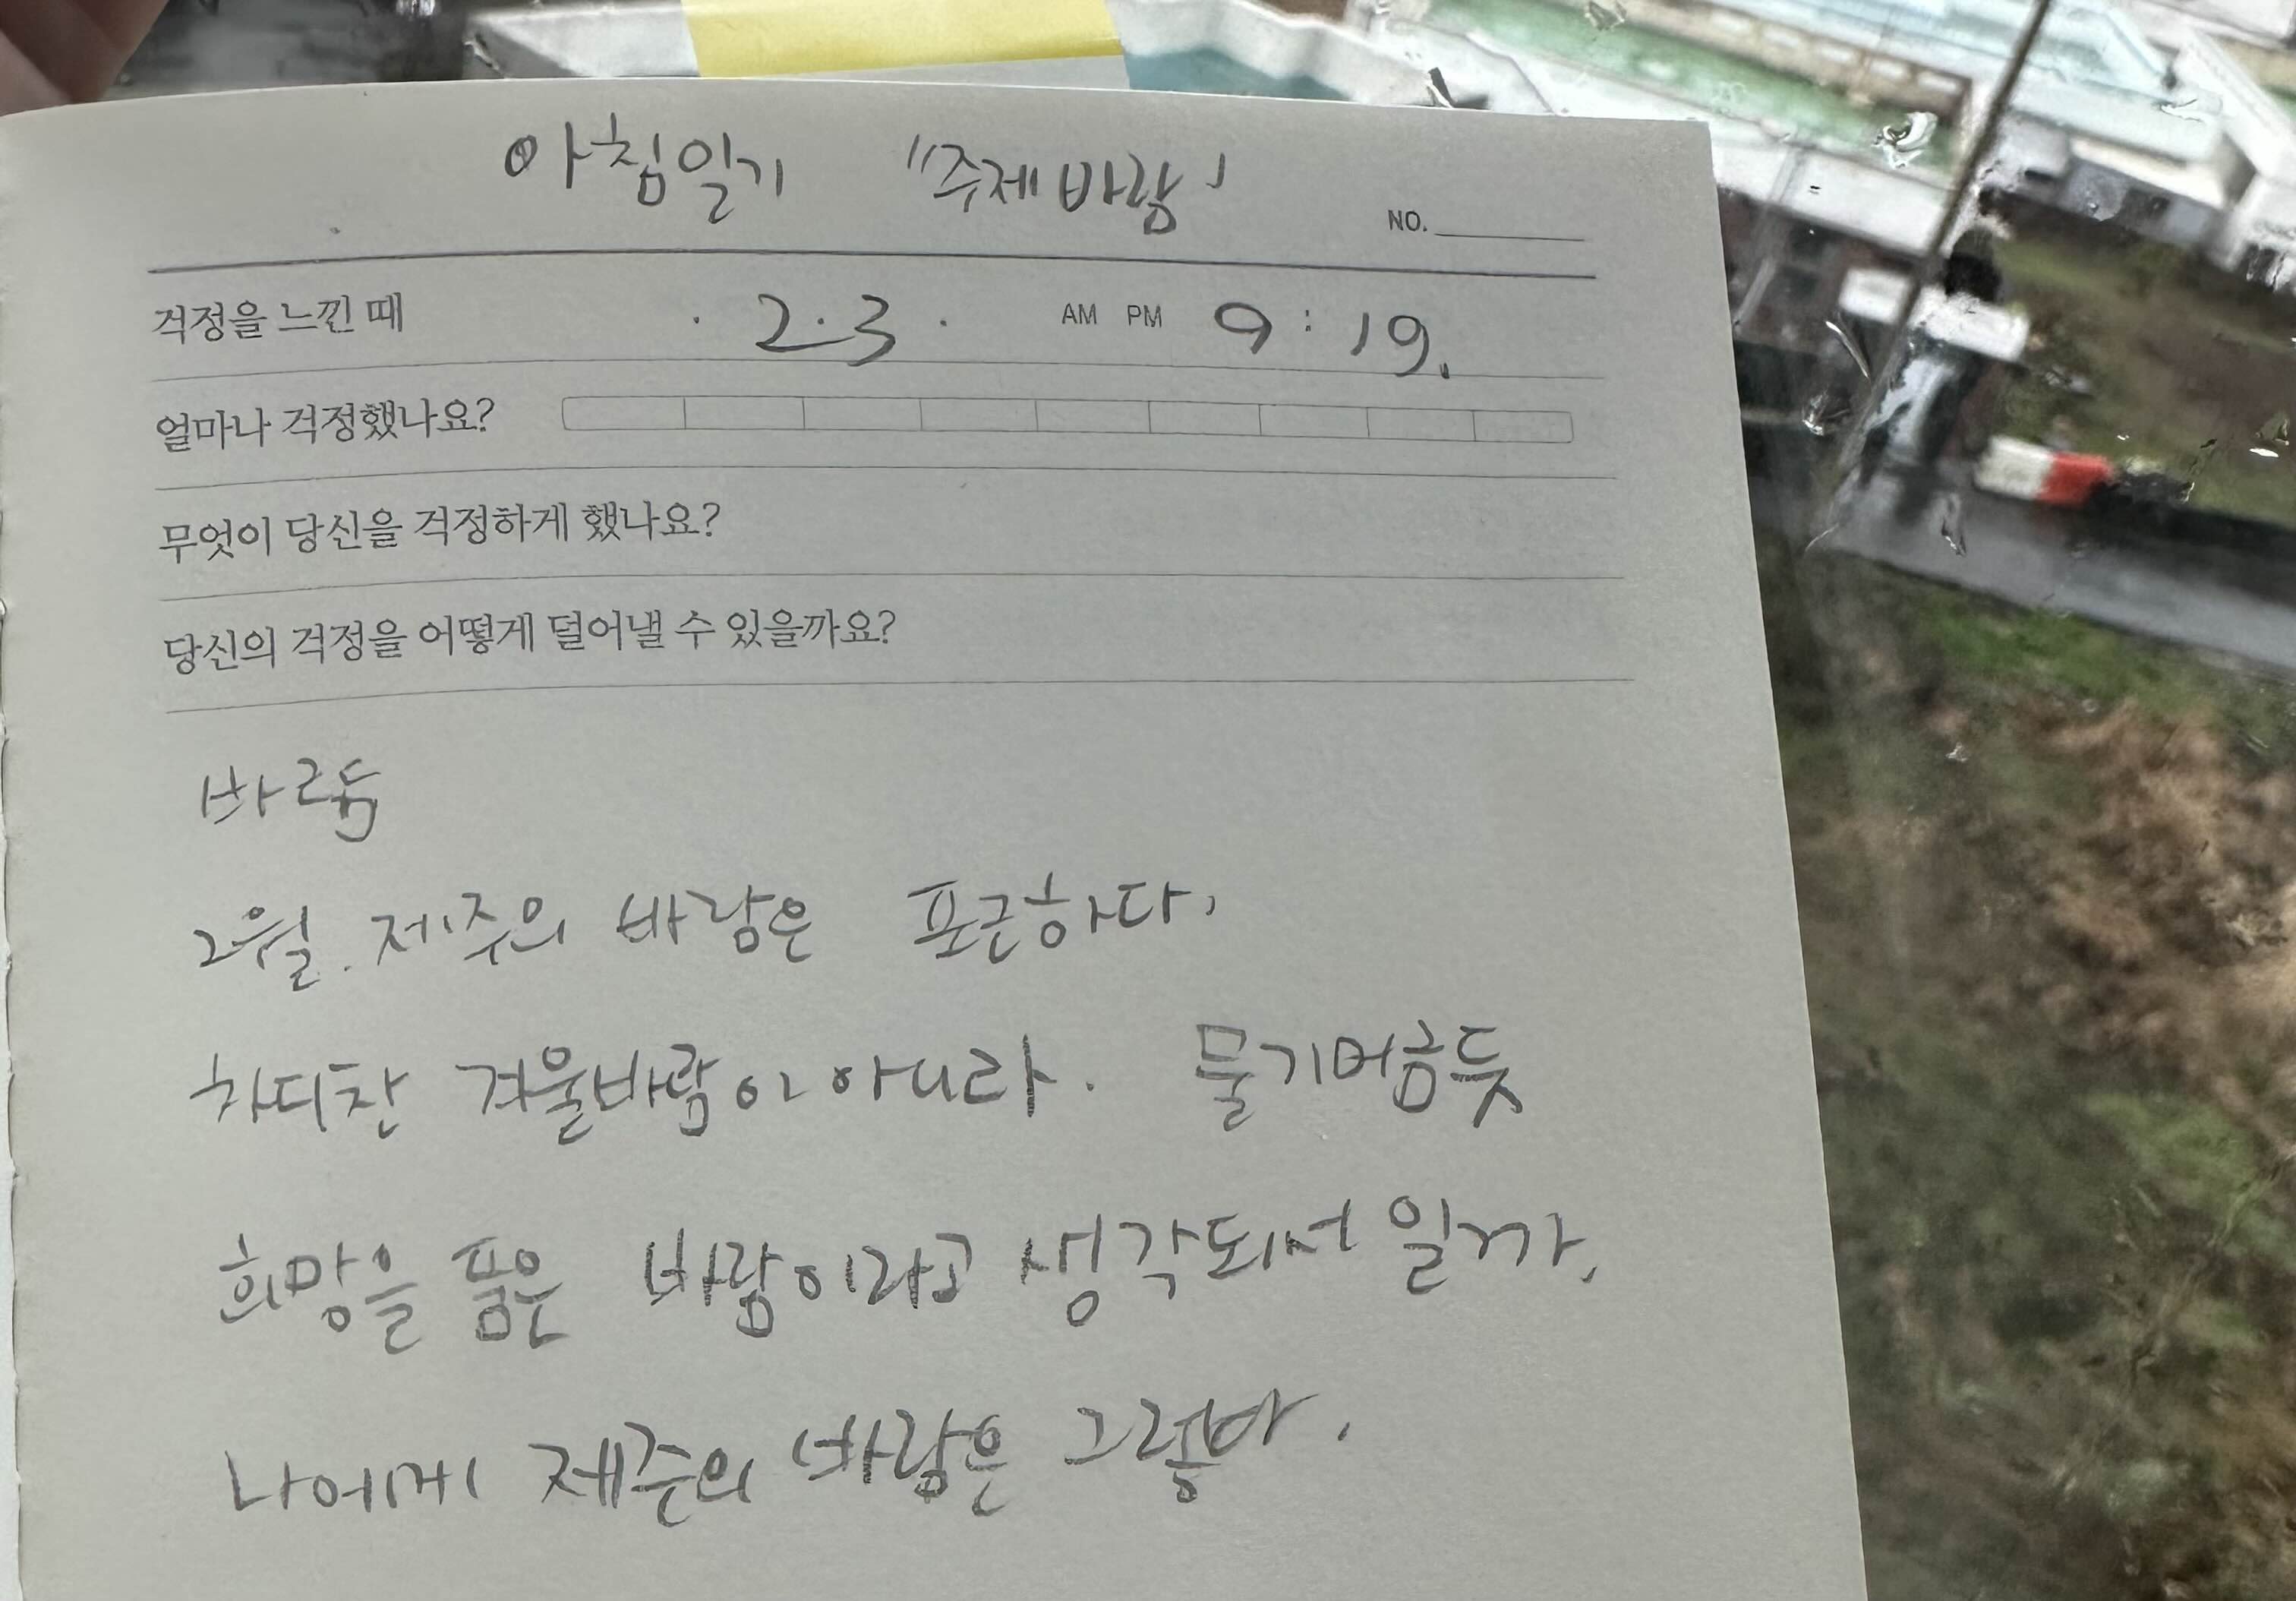 아침일기 "주제 바람"
NO.
걱정을 느낀 때 . 2. 3 . AM PM 9 : 19.
얼마나 걱정했나요?
무엇이 당신을 걱정하게 했나요?
당신의 걱정을 어떻게 덜어낼 수 있을까요?
바람
2월. 제주의 바람은 포근하다.
차디찬 겨울바람이 아니라. 물기머금듯
희망을 품은 바람이라고 생각되서 일까.
나에게 제주의 바람은 그렇다.